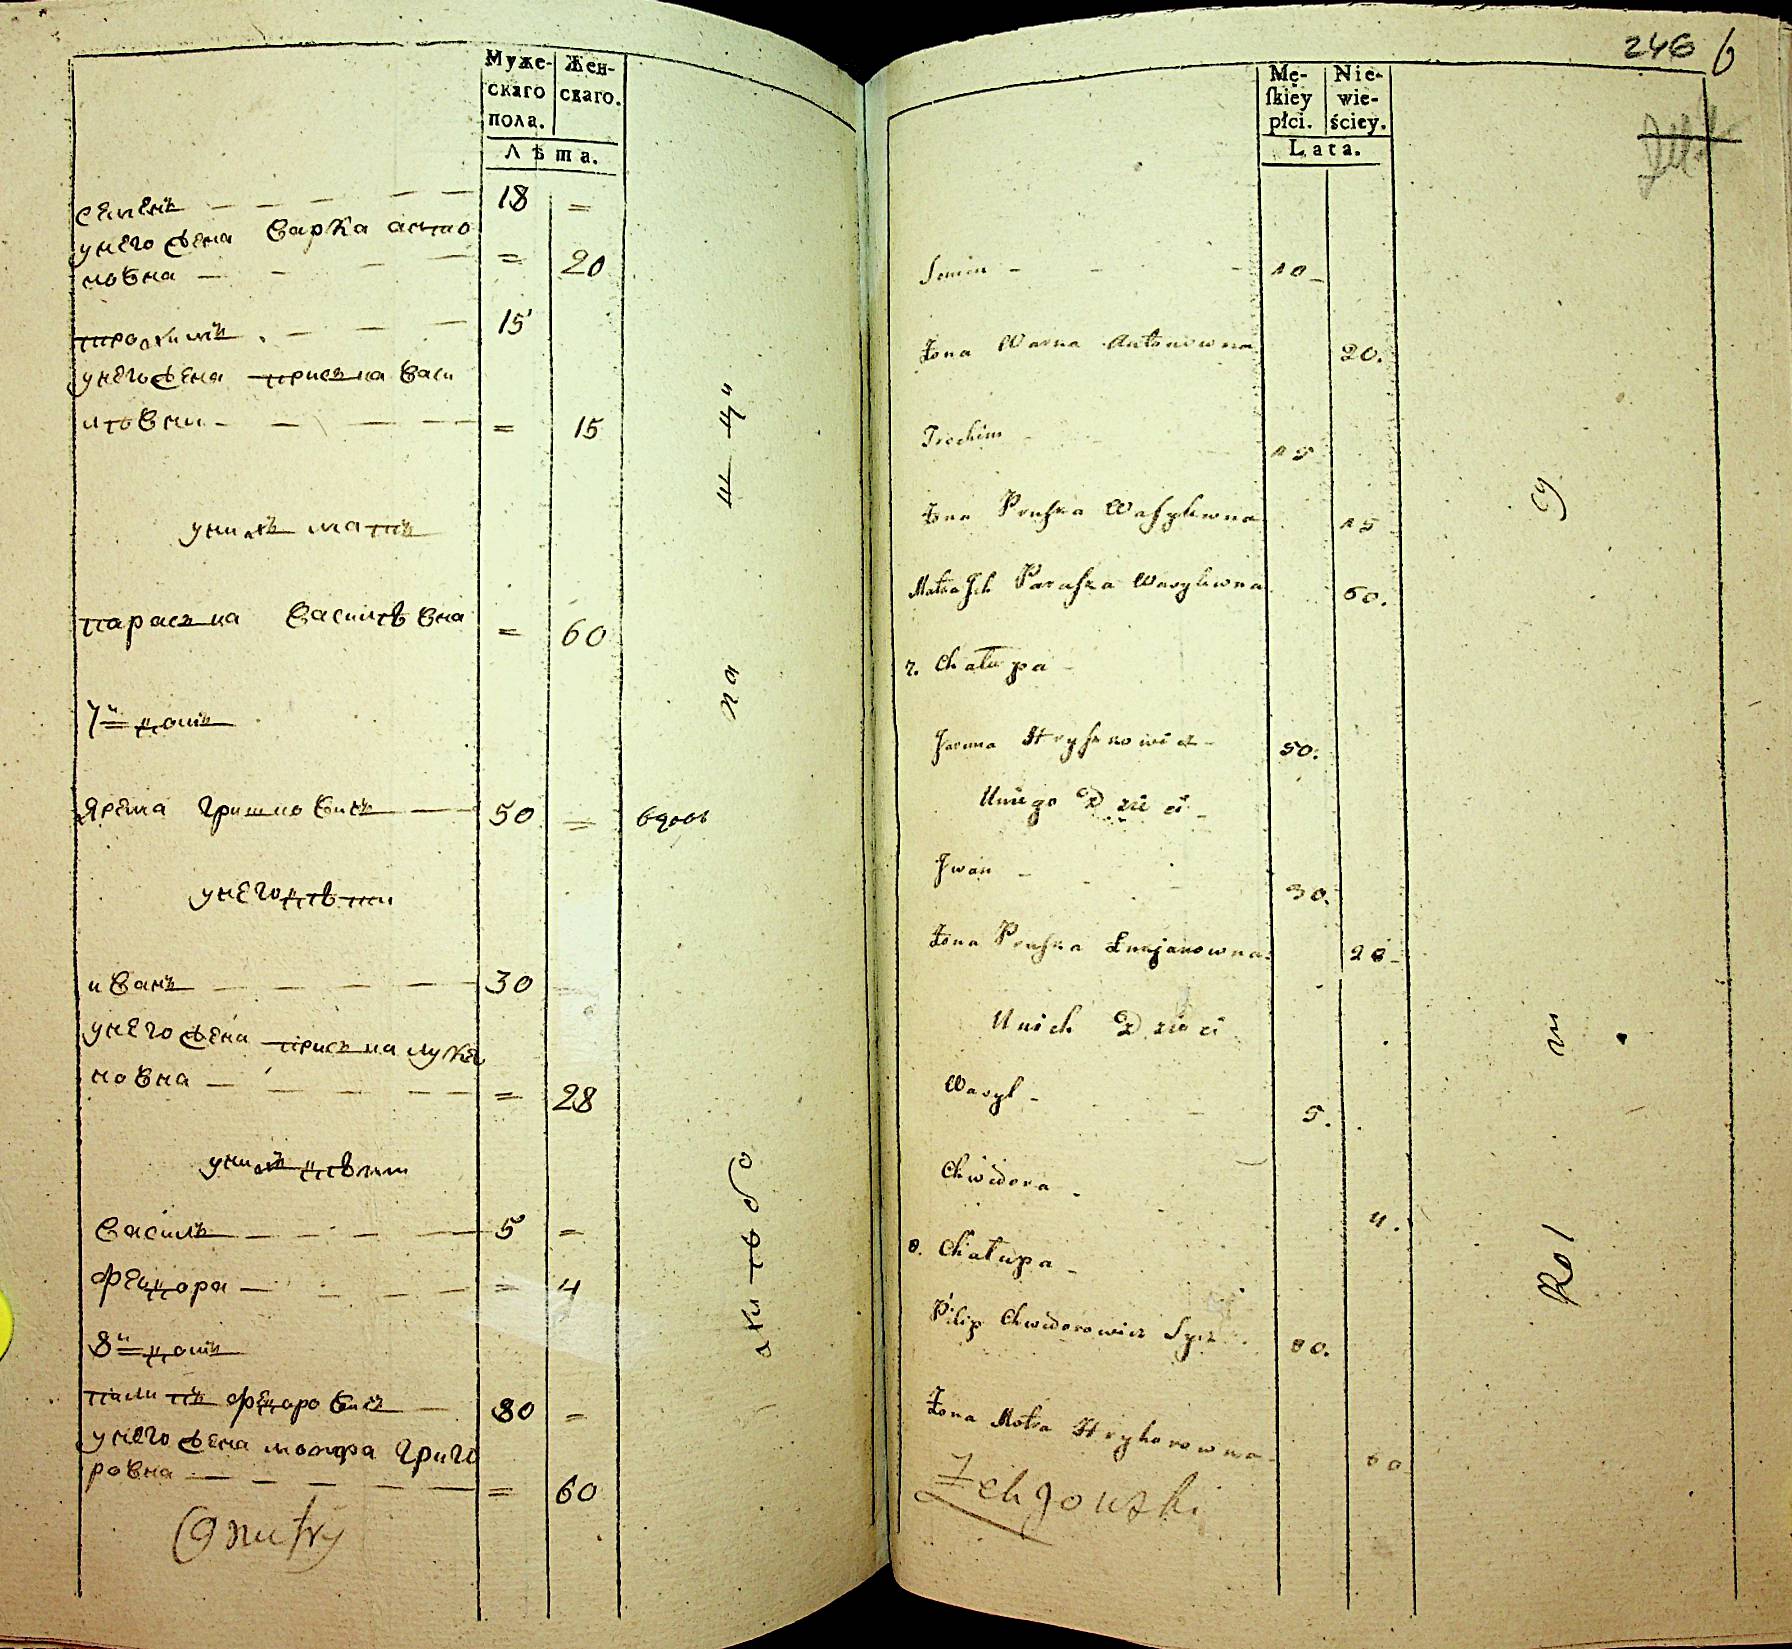 Муже-
скаго
пола.
Жен-
скаго.
Лѣта.
Семенъ — — — — 18 =
унего жена Варка анто
новна — — — — = 20
трохимъ — — — 15
унего жена приська Васи
лювни — — — — = 15
унихъ мать
параска Василѣвна = 60
7й домъ
Ярема Гришковичъ — 50 = вдовъ
унего дѣти
иванъ — — — — 30
унего жена приська лукія
новна — — — — = 28
унихъ дѣти
Василь — — — — 5 =
федора — — — — = 4
8й домъ
пилипъ федоровичъ — 80 =
унего жена мотра Григо
ровна — — — — = 60
Onufry
246 6
Mę-
ſkiey
płci.
Nie-
wie-
ściey.
Lata.
Semen - - - 18 -
Żona Warka Antonowna 20.
Trochim 15
Żona Pruſka Waſylewna 15
Matka Jch Paraſka Wasylewna 60.
7. Chałupa -
Jarema Hryſzkowicz - 50.
Uniego Dzieci -
Jwan - - - 30.
Żona Pruſka Łukjanowna 28 -
Unich Dzieci
Wasyl - - - 5.
Chwidora - 4.
8. Chałupa -
Pilip Chwidorowicz 80.
Żona Motra Hryhorowna 60